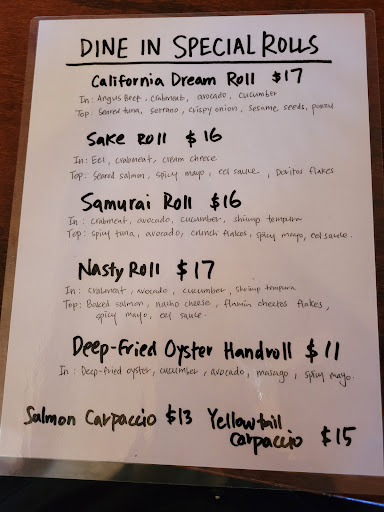 DINE IN SPECIAL ROLLS
California Dream Roll $17
In: Angus Beef, crabmeat, avocado, cucumber
Top: Seared tuna, serrano, crispy onion, sesame seeds, ponzu
Sake Roll $16
In: Eel, crabmeat, cream cheese
Top: Seared salmon, spicy mayo, eel sauce, Doritos flakes
Samurai Roll $16
In: crabmeat, avocado, cucumber, shrimp tempura
Top: spicy tuna, avocado, crunch flakes, spicy mayo, eel sauce.
Nasty Roll $17
In: crabmeat, avocado, cucumber, shrimp tempura
Top: Baked salmon, nacho cheese, flamin cheetos flakes,
spicy mayo, eel sauce.
Deep-Fried Oyster Handroll $11
In: Deep-fried oyster, cucumber, avocado, masago, spicy mayo.
Salmon Carpaccio $13 Yellowtail
Carpaccio $15